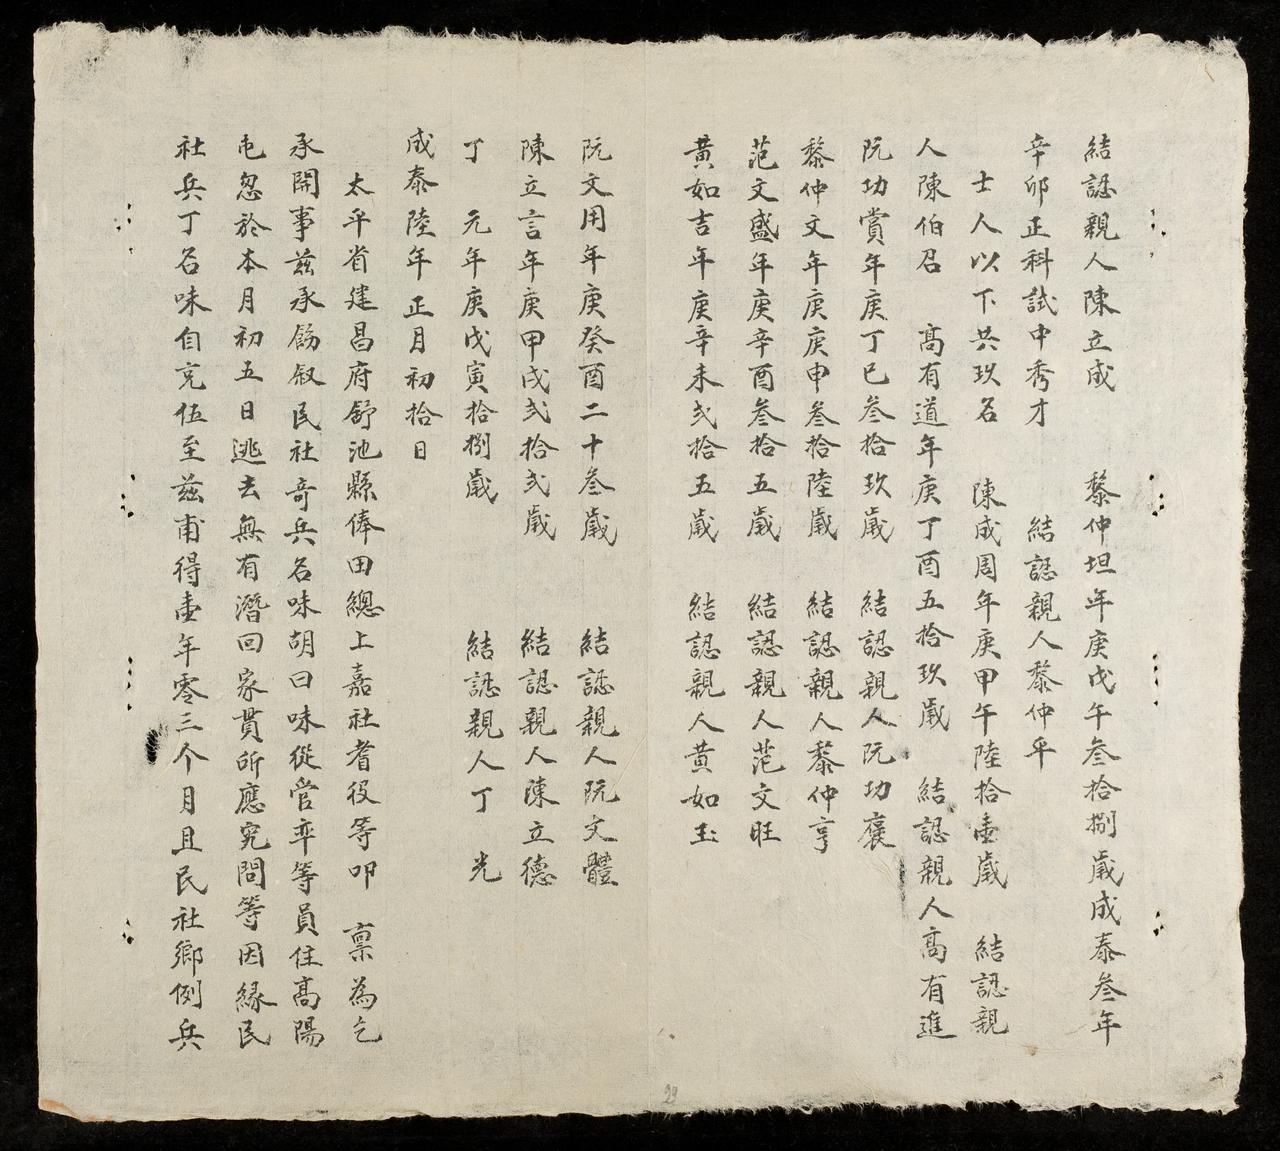 結認親人陳立成　黎仲坦年庚戊午叄拾捌歲成泰叄年
辛卯正科試中秀才　結認親人黎仲平
士人以下共玖名　陳成周年庚甲午陸拾壹歲　結認親
人陳伯召　高有道年庚丁酉五拾玖歲　結認親人高有進
阮功賞年庚丁巳叄拾玖歲　結認親人阮功襄
黎仲文年庚庚申叄拾陸歲　結認親人黎仲亨
范文盛年庚辛酉叄拾五歲　結認親人范文旺
黃如吉年庚辛未弍拾五歲　結認親人黃如玉
阮文用年庚癸酉二十叄歲　結認親人阮文體
陳立言年庚甲戌弍拾弍歲　結認親人陳立德
丁　元年庚戊寅拾捌歲　結認親人丁　光
成泰陸年正月初拾日
太平省建昌府舒池縣俸田總上嘉社耆役等叩　稟為乞
承開事茲承飭叙民社奇兵名味胡曰味從管率等員住高陽
屯忽於本月初五日逃去無有潛回家貫所應究問等因緣民
社兵丁名味自充伍至茲甫得壹年零三个月且民社鄉例兵
22